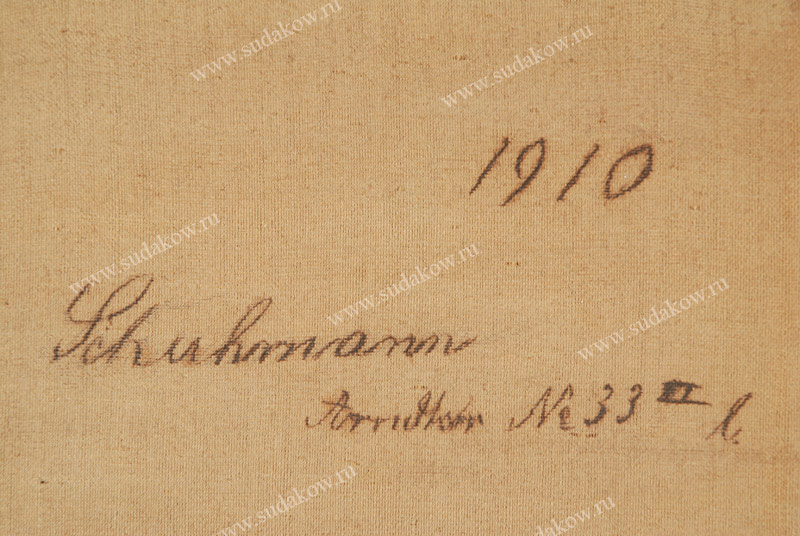 1910
Schuhmann
Arndtstr № 33 III l.
www.sudakow.ru
www.sudakow.ru
www.sudakow.ru
www.sudakow.ru
www.sudakow.ru
www.sudakow.ru
www.sudakow.ru